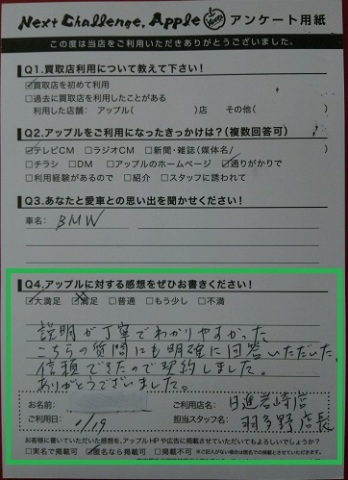 Next Challenge, Apple アンケート用紙
この度は当店をご利用いただきありがとうございました。
Q1.買取店利用について教えて下さい!
☑買取店を初めて利用
□過去に買取店を利用したことがある
利用した店舗:アップル( )店 その他( )
Q2.アップルをご利用になったきっかけは?(複数回答可)
☑テレビCM □ラジオCM □新聞・雑誌(媒体名/ )
□チラシ □DM □アップルのホームページ ☑通りがかりで
□利用経験があるので □紹介 □スタッフに誘われて
Q3.あなたと愛車との思い出を聞かせください!
車名: BMW
Q4.アップルに対する感想をぜひお書きください!
☑大満足 ☒満足 □普通 □もう少し □不満
説明が丁寧でわかりやすかった
こちらの質問にも明確に回答いただいた。
信頼できたので契約しました。
ありがとうございました。
お名前: ご利用店名: 日進岩崎店
ご利用日: 1/19 担当スタッフ名: 羽多野店長
お客様に書いていただいた感想を、アップルHPや広告に掲載させていただいてもよろしいでしょうか?
□実名で掲載可 ☑匿名なら掲載可 □掲載不可